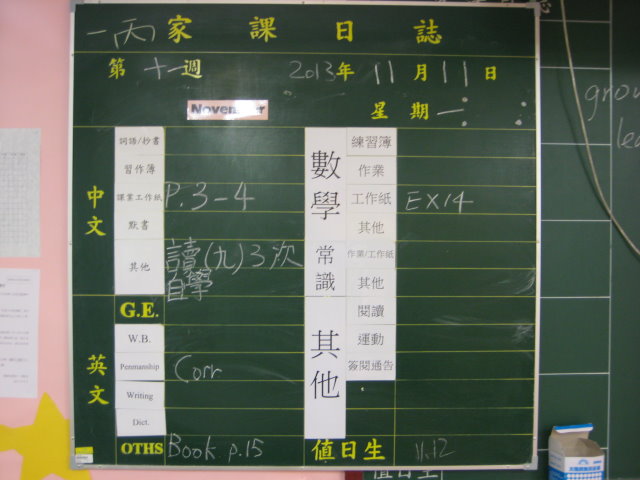 一丙家課日誌
第十一週 2013年11月11日
November 星期一
中文
詞語/抄書
習作簿
課業工作紙 P.3-4
默書
其他 讀(九)3次
自學
英文
G.E.
W.B.
Penmanship Corr
Writing
Dict.
OTHS Book p.15
數學
練習簿
作業
工作紙 EX14
其他
常識
作業/工作紙
其他
其他
閱讀
運動
簽閱通告
值日生 11.12
值日生